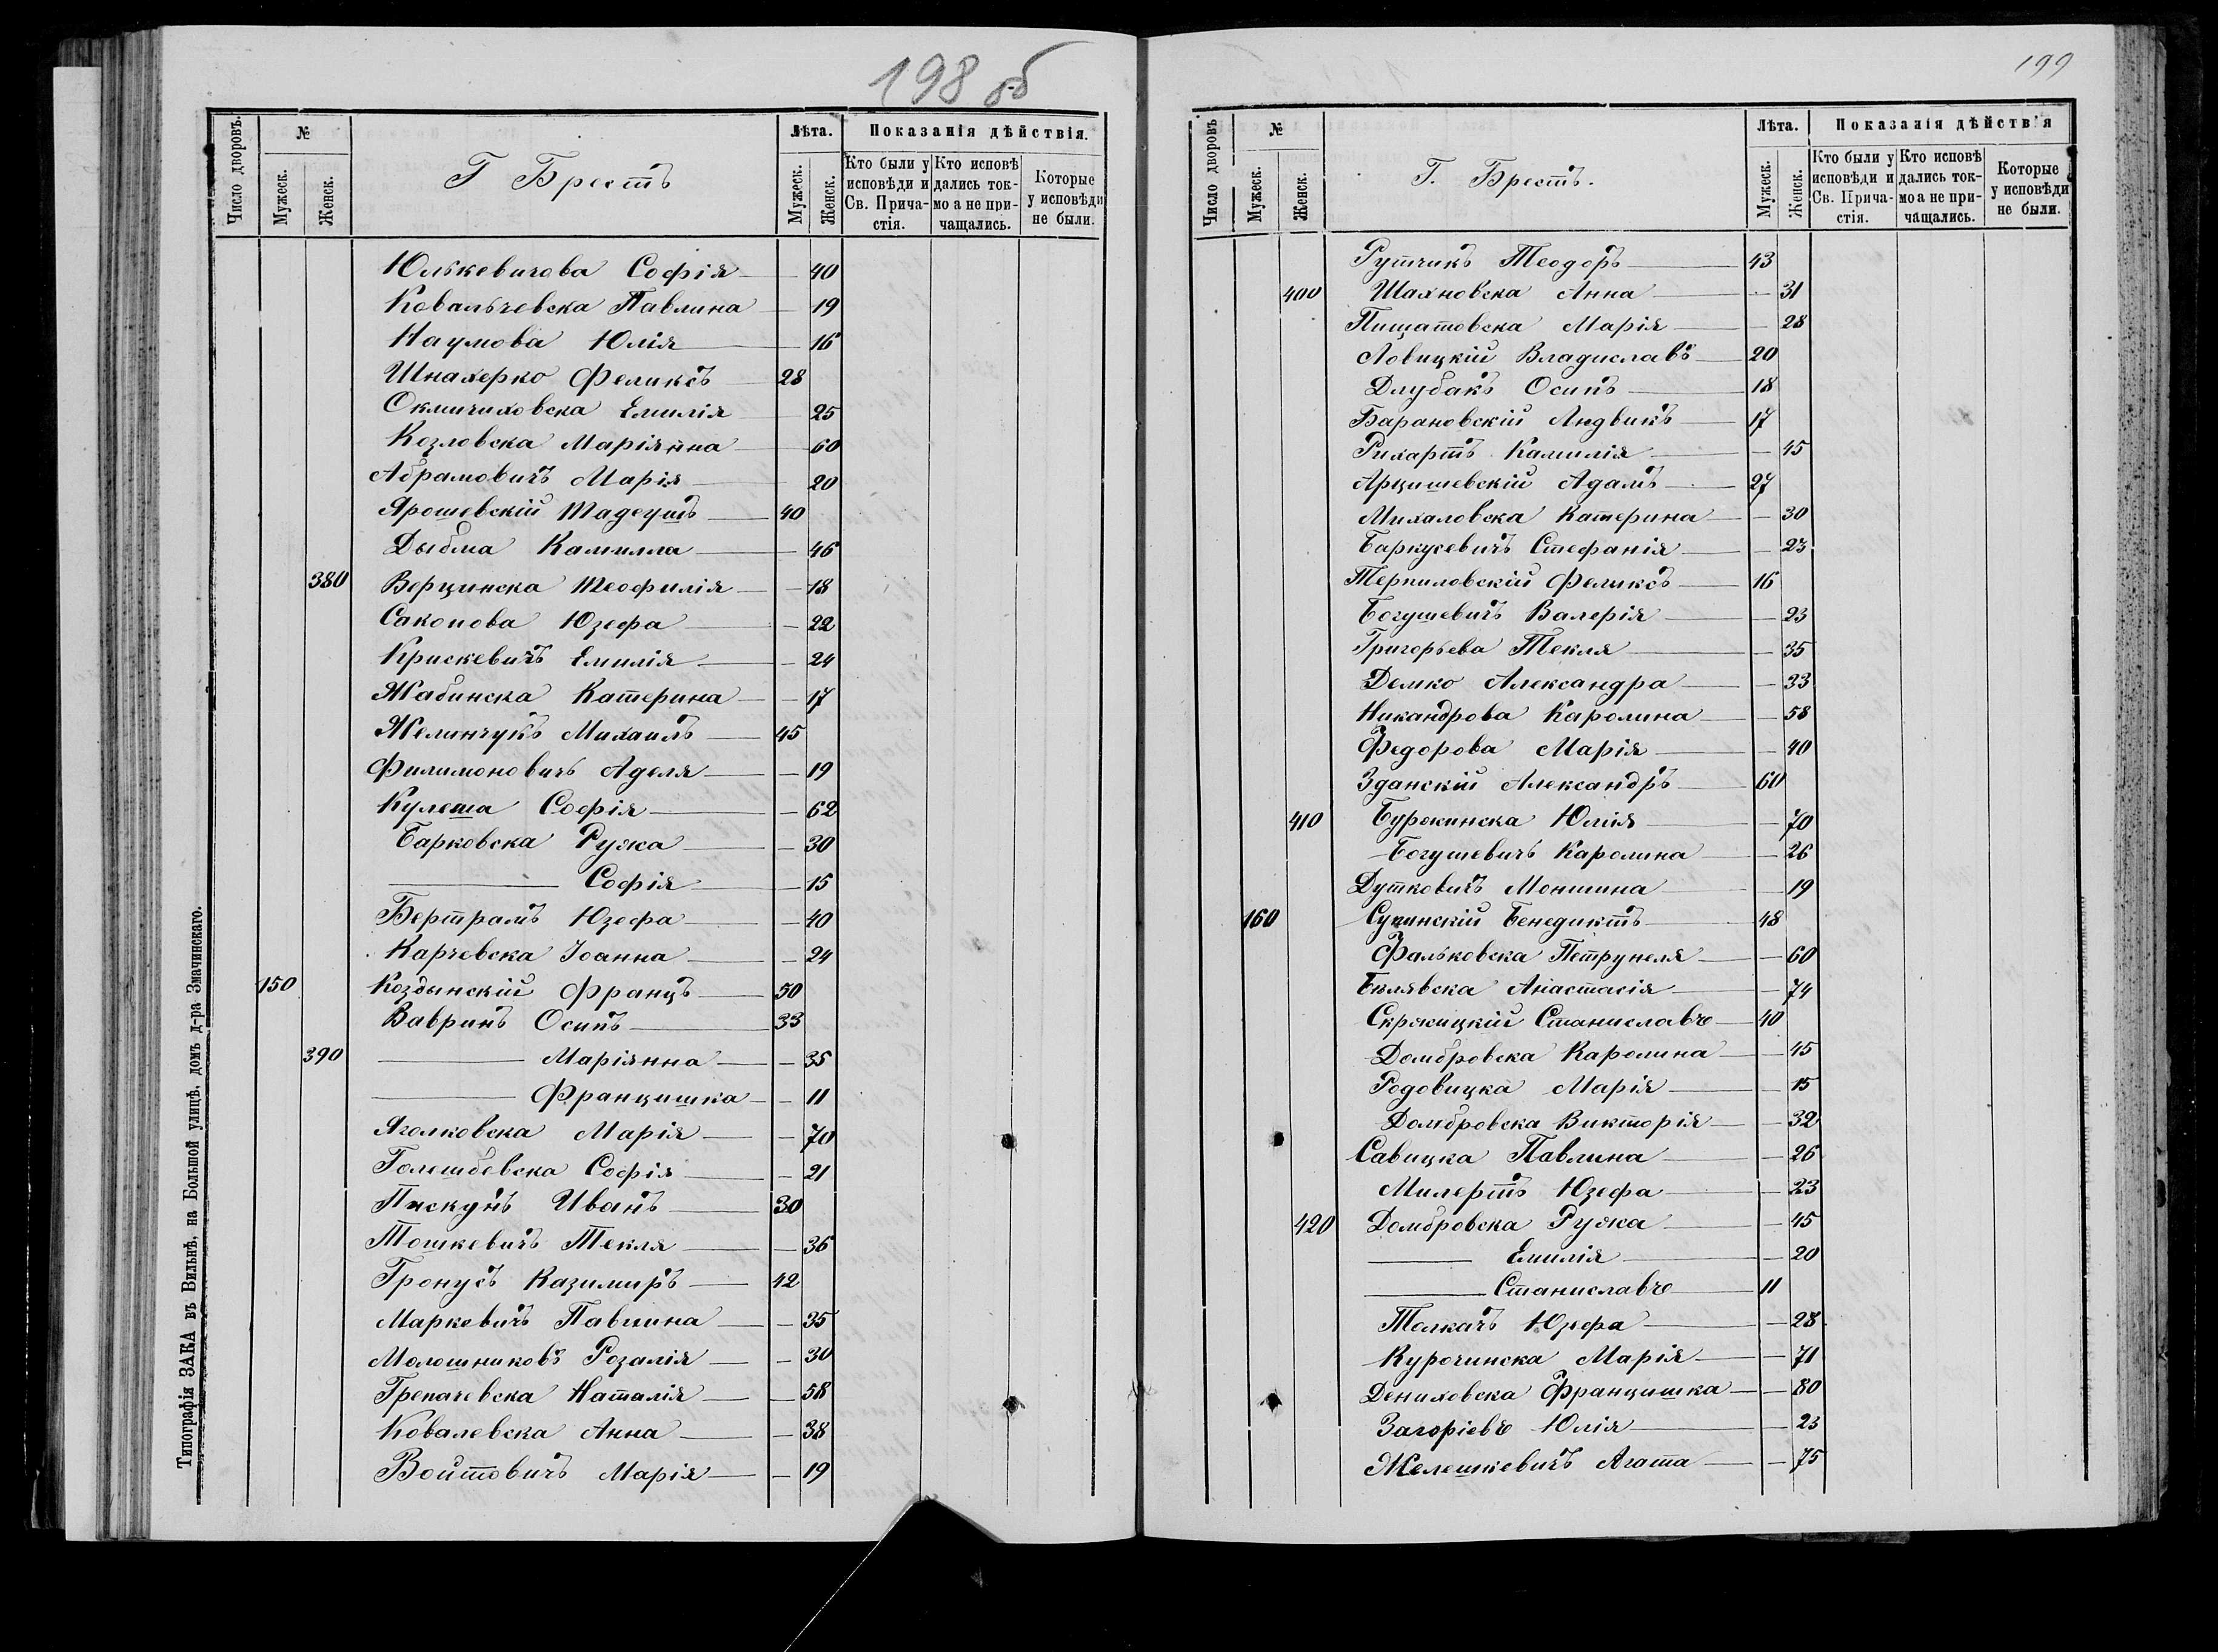 198 об
Число дворовъ.
№
Мужеск.
Женск.
Г Брестъ
Лѣта.
Мужеск.
Женск.
Показанія дѣйствія.
Кто были у исповѣди и Св. Прича-стія.
Кто исповѣ дались ток-мо а не при-чащались.
Которые у исповѣди не были.
Юлькевичова Софія — 40
Ковальчевска Павлина — 19
Наумова Юлія — 16
Шнахерко Феликсъ 28
Окмичиховска Емилія — 25
Козловска Маріянна — 60
Абрамовичъ Марія — 20
Ярошевскій Тадеушъ — 40
Дыбма Камилла — 46
380 Верцинска Теофилія — 18
Саконова Юзефа — 22
Крискевичъ Емилія — 24
Жабинска Катерина — 17
Желинчукъ Михаилъ — 45
Филимоновичъ Аделя — 19
Кулеша Софія — 62
Барковска Ружа — 30
— Софія — 15
Бертрамъ Юзефа — 40
Карчевска Іоанна — 24
150 Коздынскій Францъ — 50
Вавринъ Осипъ — 33
390 — Маріянна — 35
— Францишка — 11
Яголковска Марія — 70
Голешбевска Софія — 21
Пискунъ Иванъ — 30
Тошкевичъ Текля — 36
Гронусъ Казимиръ — 42
Маркевичъ Павлина — 35
Молошниковъ Розалія — 30
Грепачевска Наталія — 58
Ковалевска Анна — 38
Войтовичъ Марія — 19
Типографія ЗАКА въ Вильнѣ, на Большой улицѣ, домъ д-ра Змачинскаго.
199
Число дворовъ
№
Мужеск.
Женск.
Г. Брестъ.
Лѣта.
Мужеск.
Женск.
Показанія дѣйствія
Кто были у исповѣди и Св. Прича-стія.
Кто исповѣ дались ток-мо а не при-чащались.
Которые у исповѣди не были.
Рутчикъ Теодоръ — 43
400 Шахновска Анна — 31
Пищатовска Марія — 28
Ловицкій Владиславъ — 20
Длубакъ Осипъ — 18
Барановскій Людвикъ — 17
Рихартъ Камилія — 45
Арцишевскій Адамъ — 27
Михаловска Катерина — 30
Баркусевичъ Стефанія — 23
Терпиловскій Феликсъ — 16
Богушевичъ Валерія — 23
Григорьева Текля — 35
Демко Александра — 33
Никандрова Каролина — 58
Федорова Марія — 40
Зданскій Александръ — 60
410 Бурокинска Юлія — 70
Богушевичъ Каролина — 26
Дутковичъ Моншина — 19
160 Супинскій Бенедиктъ — 48
Фальковска Петрунеля — 60
Бѣлявска Анастасія — 74
Скржицкій Станиславъ — 40
Домбровска Каролина — 45
Родовицка Марія — 15
Домбровска Викторія — 32
Савицка Павлина — 26
Милертъ Юзефа — 23
420 Домбровска Ружа — 45
— Емилія — 20
— Станиславъ — 11
Толкачъ Юзефа — 28
Курочинска Марія — 71
Дениховска Францишка — 80
Загоріевъ Юлія — 23
Желешкевичъ Агата — 75